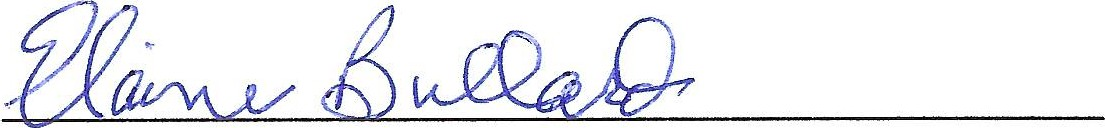 Elaine Bullard